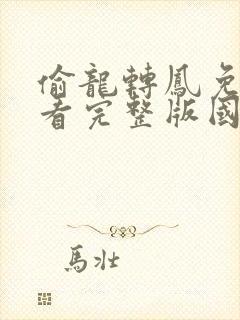 偷龍轉鳳免
看完整版國
馬壯